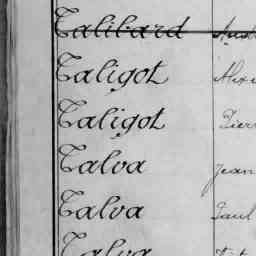 Talibard
Taligot Alexi
Taligot Pierr
Talva Jean
Talva Paul
Talva